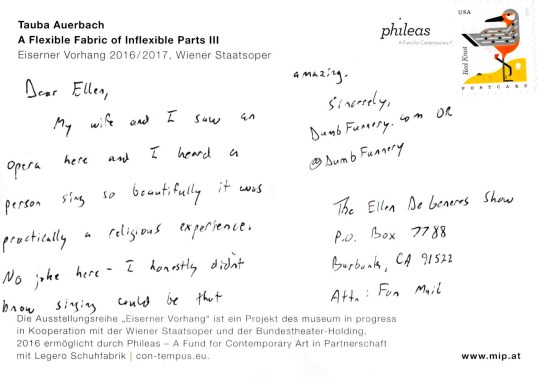 Tauba Auerbach
A Flexible Fabric of Inflexible Parts III
Eiserner Vorhang 2016/2017, Wiener Staatsoper
phileas
A Fund for Contemporary
USA
Red Knot
POSTCARD
Dear Ellen,
My wife and I saw an
opera here and I heard a
person sing so beautifully it was
practically a religious experience.
No joke here - I honestly didn't
know singing could be that
amazing.
Sincerely,
DumbFunnery.com OR
@DumbFunnery
The Ellen DeGeneres Show
P.O. Box 7788
Burbank, CA 91522
Attn: Fan Mail
Die Ausstellungsreihe „Eiserner Vorhang" ist ein Projekt des museum in progress
in Kooperation mit der Wiener Staatsoper und der Bundestheater-Holding.
2016 ermöglicht durch Phileas – A Fund for Contemporary Art in Partnerschaft
mit Legero Schuhfabrik | con-tempus.eu.
www.mip.at